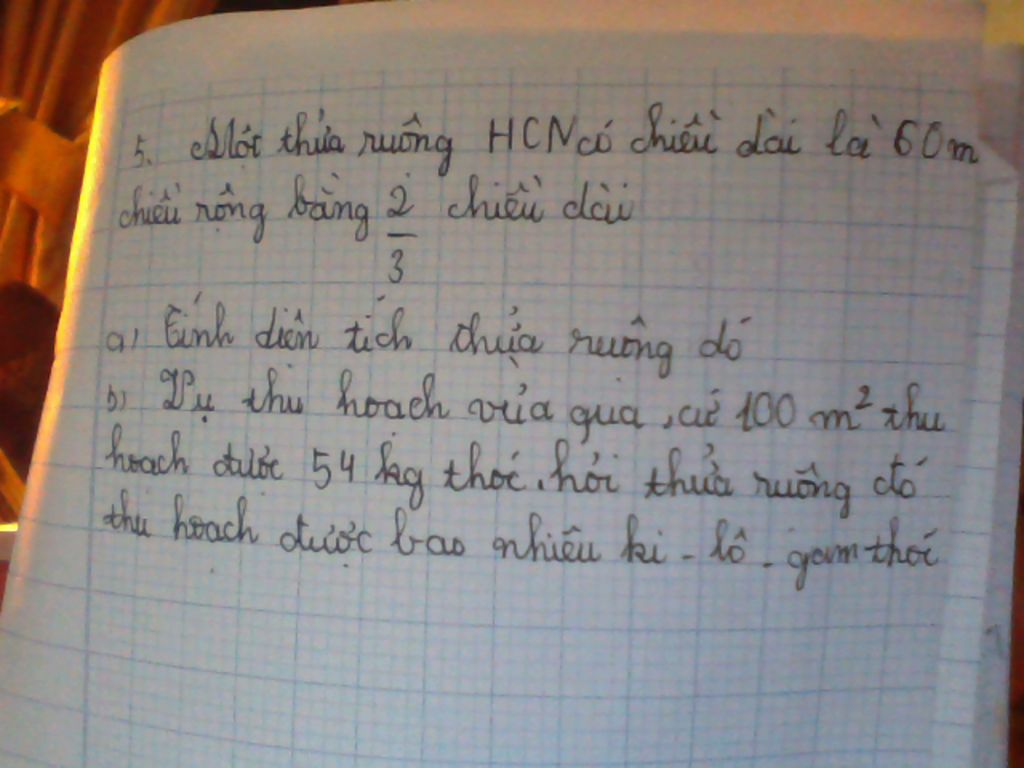 5. Một thửa ruộng HCN có chiều dài là 60m
chiều rộng bằng 2/3 chiều dài
a) Tính diện tích thửa ruộng đó
b) Vụ thu hoạch vừa qua, cứ 100 m² thu
hoạch được 54 kg thóc. hỏi thửa ruộng đó
thu hoạch được bao nhiêu ki - lô - gam thóc